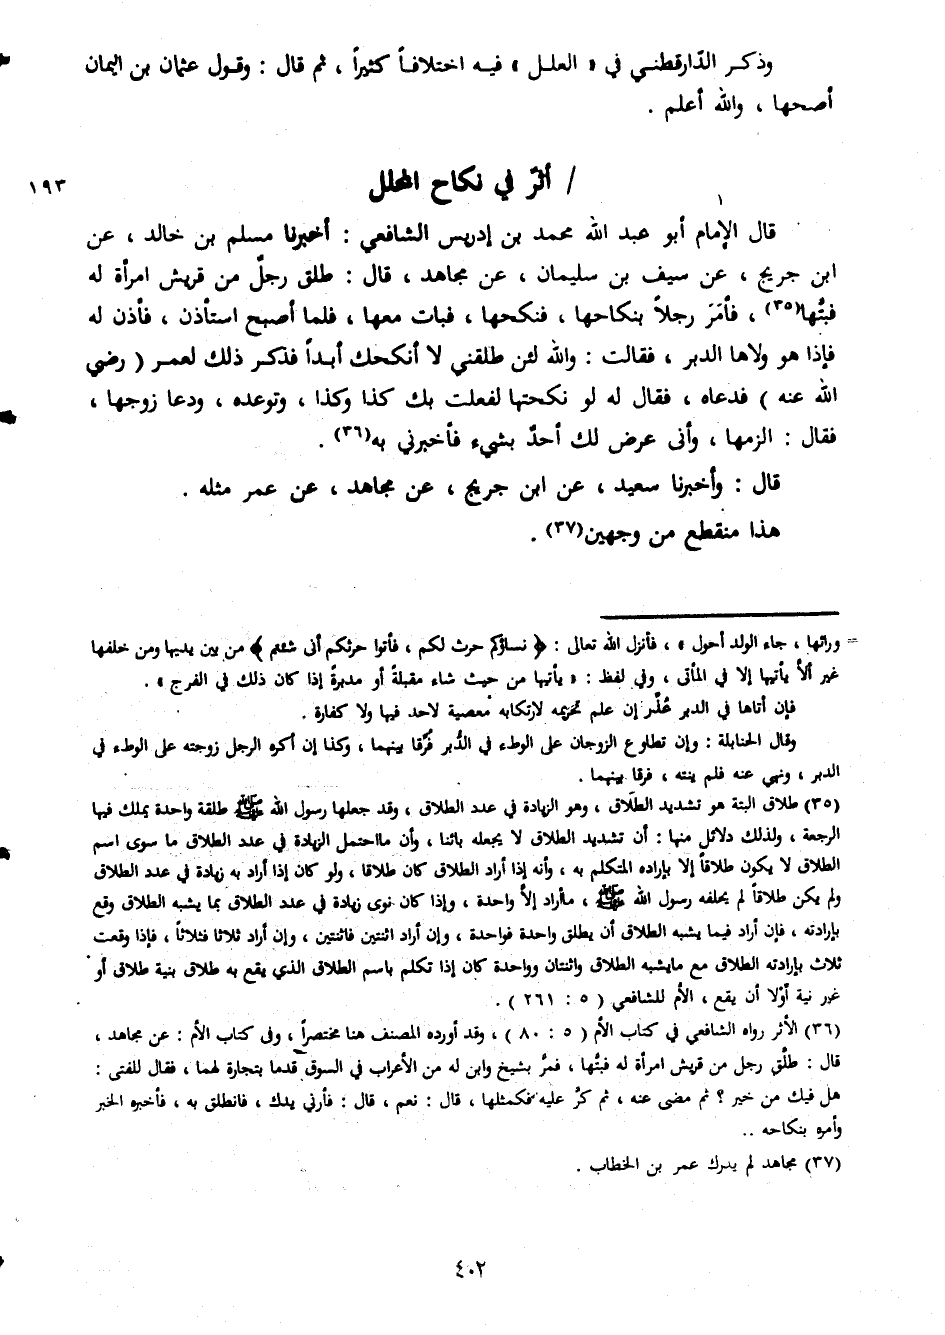 وذكر الدّارقطني في « العلل » فيه اختلافاً كثيراً ، ثم قال : وقول عثمان بن اليمان
أصحها ، والله أعلم .
/ أثرٌ في نكاح المحلل
١٩٣
قال الإمام أبو عبد الله محمد بن إدريس الشافعي : أخبرنا مسلم بن خالد ، عن
ابن جريج ، عن سيف بن سليمان ، عن مجاهد ، قال : طلق رجلٌ من قريش امرأة له
فبتُّها(٣٥) ، فأمَرَ رجلاً بنكاحها ، فنكحها ، فبات معها ، فلما أصبح استأذن ، فأذن له
فإذا هو ولاها الدبر ، فقالت : والله لئن طلقني لا أنكحك أبداً فذكر ذلك لعمر ( رضي
الله عنه ) فدعاه ، فقال له لو نكحتها لفعلت بك كذا وكذا ، وتوعده ، ودعا زوجها ،
فقال : الزمها ، وأنى عرض لك أحدٌ بشيء فأخبرني به(٣٦) .
قال : وأخبرنا سعيد ، عن ابن جريج ، عن مجاهد ، عن عمر مثله .
هذا منقطع من وجهين(٣٧) .
= ورائها ، جاء الولد أحول » ، فأنزل الله تعالى : ﴿ نساؤكم حرث لكم ، فأتوا حرثكم أنى شئتم ﴾ من بين يديها ومن خلفها
غير ألاَّ يأتيها إلا في المأتى ، وفي لفظ : « يأتيها من حيث شاء مقبلةً أو مدبرةً إذا كان ذلك في الفرج » .
فإن أتاها في الدبر عُذِّر إن علم تحريمه لارتكابه معصية لاحد فيها ولا كفارة .
وقال الحنابلة : وإن تطاوع الزوجان على الوطء في الدُّبر فُرِّقا بينهما ، وكذا إن أكره الرجل زوجته على الوطء في
الدبر ، ونهي عنه فلم ينته ، فرقا بينهما .
(٣٥) طلاق البتة هو تشديد الطلاق ، وهو الزيادة في عدد الطلاق ، وقد جعلها رسول الله ﷺ طلقة واحدة يملك فيها
الرجعة ، ولذلك دلائل منها : أن تشديد الطلاق لا يجعله بائنا ، وأن مااحتمل الزيادة في عدد الطلاق ما سوى اسم
الطلاق لا يكون طلاقاً إلا بإراده المتكلم به ، وأنه إذا أراد الطلاق كان طلاقا ، ولو كان إذا أراد به زيادة في عدد الطلاق
ولم يكن طلاقاً لم يحلفه رسول الله ﷺ ، ماأراد إلاَّ واحدة ، وإذا كان نوى زيادة في عدد الطلاق بما يشبه الطلاق وقع
بإرادته ، فإن أراد فيما يشبه الطلاق أن يطلق واحدة فواحدة ، وإن أراد اثنتين فاثنتين ، وإن أراد ثلاثا فثلاثاً ، فإذا وقعت
ثلاث بإرادته الطلاق مع مايشبه الطلاق واثنتان وواحدة كان إذا تكلم باسم الطلاق الذي يقع به طلاق بنية طلاق أو
غير نية أوْلا أن يقع ، الأم للشافعي ( ٥ : ٢٦١ ) .
(٣٦) الأثر رواه الشافعي في كتاب الأم ( ٥ : ٨٠ ) ، وقد أورده المصنف هنا مختصراً ، وفى كتاب الأم : عن مجاهد ،
قال : طلَّق رجل من قريش امرأة له فبتُّها ، فمرَّ بشيخ وابن له من الأعراب في السوق قدما بتجارة لهما ، فقال للفتى :
هل فيك من خير ؟ ثم مضى عنه ، ثم كرّ عليه فكمثلها ، قال : نعم ، قال : فأرني يدك ، فانطلق به ، فأخبره الخبر
وأمره بنكاحه ..
(٣٧) مجاهد لم يدرك عمر بن الخطاب .
٤٠٢